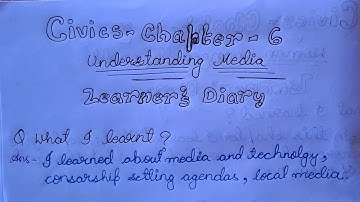 Civics-Chapter-6
Understanding Media
Learner's Diary
Q What I learnt?
Ans- I learned about media and technolgy,
consarship setting agendas, local media.